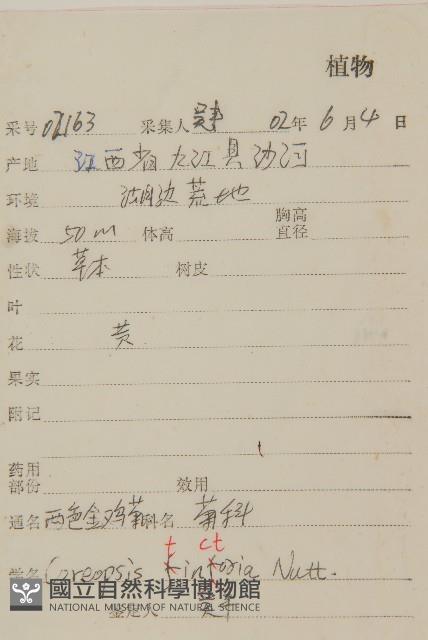 植物
采号 02163 采集人 02年 6月4日
产地 江西省九江县沙河
环境 湖边荒地
胸高
海拔 50m 体高 直径
性状 草本 树皮
叶
花 黄
果实
附记
药用
部份 效用
通名 两色金鸡菊 科名 菊科
t ct
学名 Coreopsis kinkoria Nutt.
國立自然科學博物館
NATIONAL MUSEUM OF NATURAL SCIENCE
鉴定人